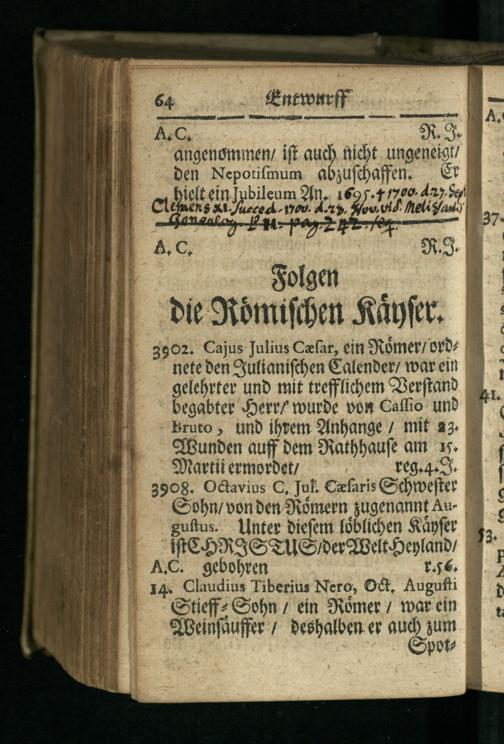 64 Entwurff
A.C. R.J.
angenommen/ ist auch nicht ungeneigt/
den Nepotismum abzuschaffen. Er
hielt ein Jubileum An. 1695. † 1700. d. 27. Sept
Clemens XI. succed. 1700. d. 23. Nov. vid.
P. II. pag. 242.
A.C. R.J.
Folgen
die Römischen Käyser.
3902. Cajus Julius Cæsar, ein Römer/ ord-
nete den Julianischen Calender/ war ein
gelehrter und mit trefflichem Verstand
begabter Herr/ wurde von Cassio und
Bruto, und ihrem Anhange / mit 23.
Wunden auff dem Rathhause am 15.
Martii ermordet/ reg. 4. J.
3908. Octavius C. Jul. Cæsaris Schwester
Sohn/ von den Römern zugenannt Au-
gustus. Unter diesem löblichen Käyser
ist CHRISTUS/ der Welt Heyland/
A.C. gebohren r. 56.
14. Claudius Tiberius Nero, Oct. Augusti
Stieff-Sohn / ein Römer / war ein
Weinsäuffer / deshalben er auch zum
Spot-
A.C.
37.
41.
53.